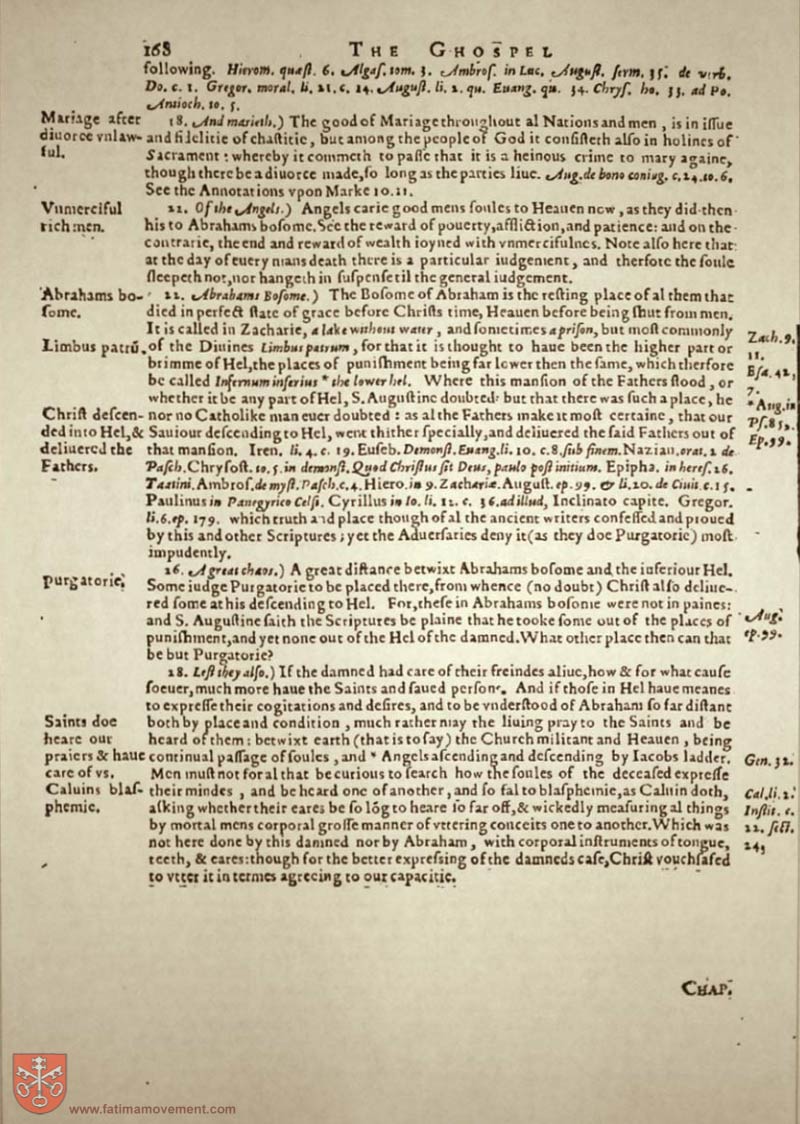 168 THE GHOSPEL
following. Hierom. quæst. 6. Algas. tom. 3. Ambros. in Luc. August. serm. 35. de verb.
Do. c. 1. Gregor. moral. li. 21. c. 14. August. li. 2. qu. Euang. qu. 34. Chrys. ho. 33. ad Po.
Antioch. to. 5.
Mariage after diuorce vnlaw-ful.
18. And marieth.) The good of Mariage throughout al Nations and men, is in issue
and fidelitie of chastitie, but among the people of God it consisteth also in holines of
Sacrament: whereby it commeth to passe that it is a heinous crime to mary againe,
though there be a diuorce made, so long as the parties liue. Aug. de bono coniug. c. 24. to. 6.
See the Annotations vpon Marke 10. 11.
Vnmerciful
rich men.
22. Of the Angels.) Angels carie good mens soules to Heauen now, as they did then
his to Abrahams bosome. See the reward of pouerty, affliction, and patience: and on the
contrarie, the end and reward of wealth ioyned with vnmercifulnes. Note also here that
at the day of euery mans death there is a particular iudgement, and therfore the soule
sleepeth not, nor hangeth in suspense til the general iudgement.
Abrahams bo-
some.
22. Abrahams Bosome.) The Bosome of Abraham is the resting place of al them that
died in perfect state of grace before Christs time, Heauen before being shut from men.
It is called in Zacharie, a lake without water, and sometimes a prison, but most commonly
Zach. 9.
11.
Limbus patrū.
of the Diuines Limbus patrum, for that it is thought to haue been the higher part or
brimme of Hel, the places of punishment being far lower then the same, which therfore
Esa. 42,
7.
be called Infernum inferius * the lower hel. Where this mansion of the Fathers stood, or
whether it be any part of Hel, S. Augustine doubted: but that there was such a place, he
*Aug. in
Ps. 85.
Ep. 99.
Christ descen-
ded into Hel, &
deliuered the
Fathers.
nor no Catholike man euer doubted: as al the Fathers make it most certaine, that our
Sauiour descending to Hel, went thither specially, and deliuered the said Fathers out of
that mansion. Iren. li. 4. c. 19. Euseb. Demonst. Euang. li. 10. c. 8. sub finem. Nazian. orat. 2 de
Pasch. Chrysost. to. 5. in demonst. Quod Christus sit Deus, paulo post initium. Epipha. in heres. 26.
Tatini. Ambros. de myst. Pasch. c. 4. Hiero. in 9. Zachariæ. August. ep. 99. & li. 20. de Ciuit. c. 15.
Paulinus in Panegyrico Celsi. Cyrillus in Io. li. 12. c. 36. ad illud, Inclinato capite. Gregor.
li. 6. ep. 179. which truth and place though of al the ancient writers confessed and proued
by this and other Scriptures; yet the Aduersaries deny it (as they doe Purgatorie) most
impudently.
26. A great chaos.) A great distance betwixt Abrahams bosome and the inferiour Hel.
Purgatorie.
Some iudge Purgatorie to be placed there, from whence (no doubt) Christ also deliue-
red some at his descending to Hel. For, these in Abrahams bosome were not in paines:
and S. Augustine saith the Scriptures be plaine that he tooke some out of the places of
punishment, and yet none out of the Hel of the damned. What other place then can that
be but Purgatorie?
Aug.
ep. 99.
28. Lest they also.) If the damned had care of their freindes aliue, how & for what cause
soeuer, much more haue the Saints and saued persons. And if those in Hel haue meanes
to expresse their cogitations and desires, and to be vnderstood of Abraham so far distant
Saints doe
heare our
praiers & haue
care of vs.
both by place and condition, much rather may the liuing pray to the Saints and be
heard of them: betwixt earth (that is to say) the Church militant and Heauen, being
continual passage of soules, and * Angels ascending and descending by Iacobs ladder.
Gen. 32.
Men must not for al that be curious to search how the soules of the deceased expresse
Caluins blas-
phemie.
their mindes, and be heard one of another, and so fal to blasphemie, as Caluin doth,
asking whether their eares be so lōg to heare so far off, & wickedly measuring al things
by mortal mens corporal grosse manner of vttering conceits one to another. Which was
Cal. li. 2.
Instit. c.
22. sect.
24,
not here done by this damned nor by Abraham, with corporal instruments of tongue,
teeth, & eares: though for the better expressing of the damneds case, Christ vouchsafed
to vtter it in termes agreeing to our capacitie.
CHAP.
www.fatimamovement.com